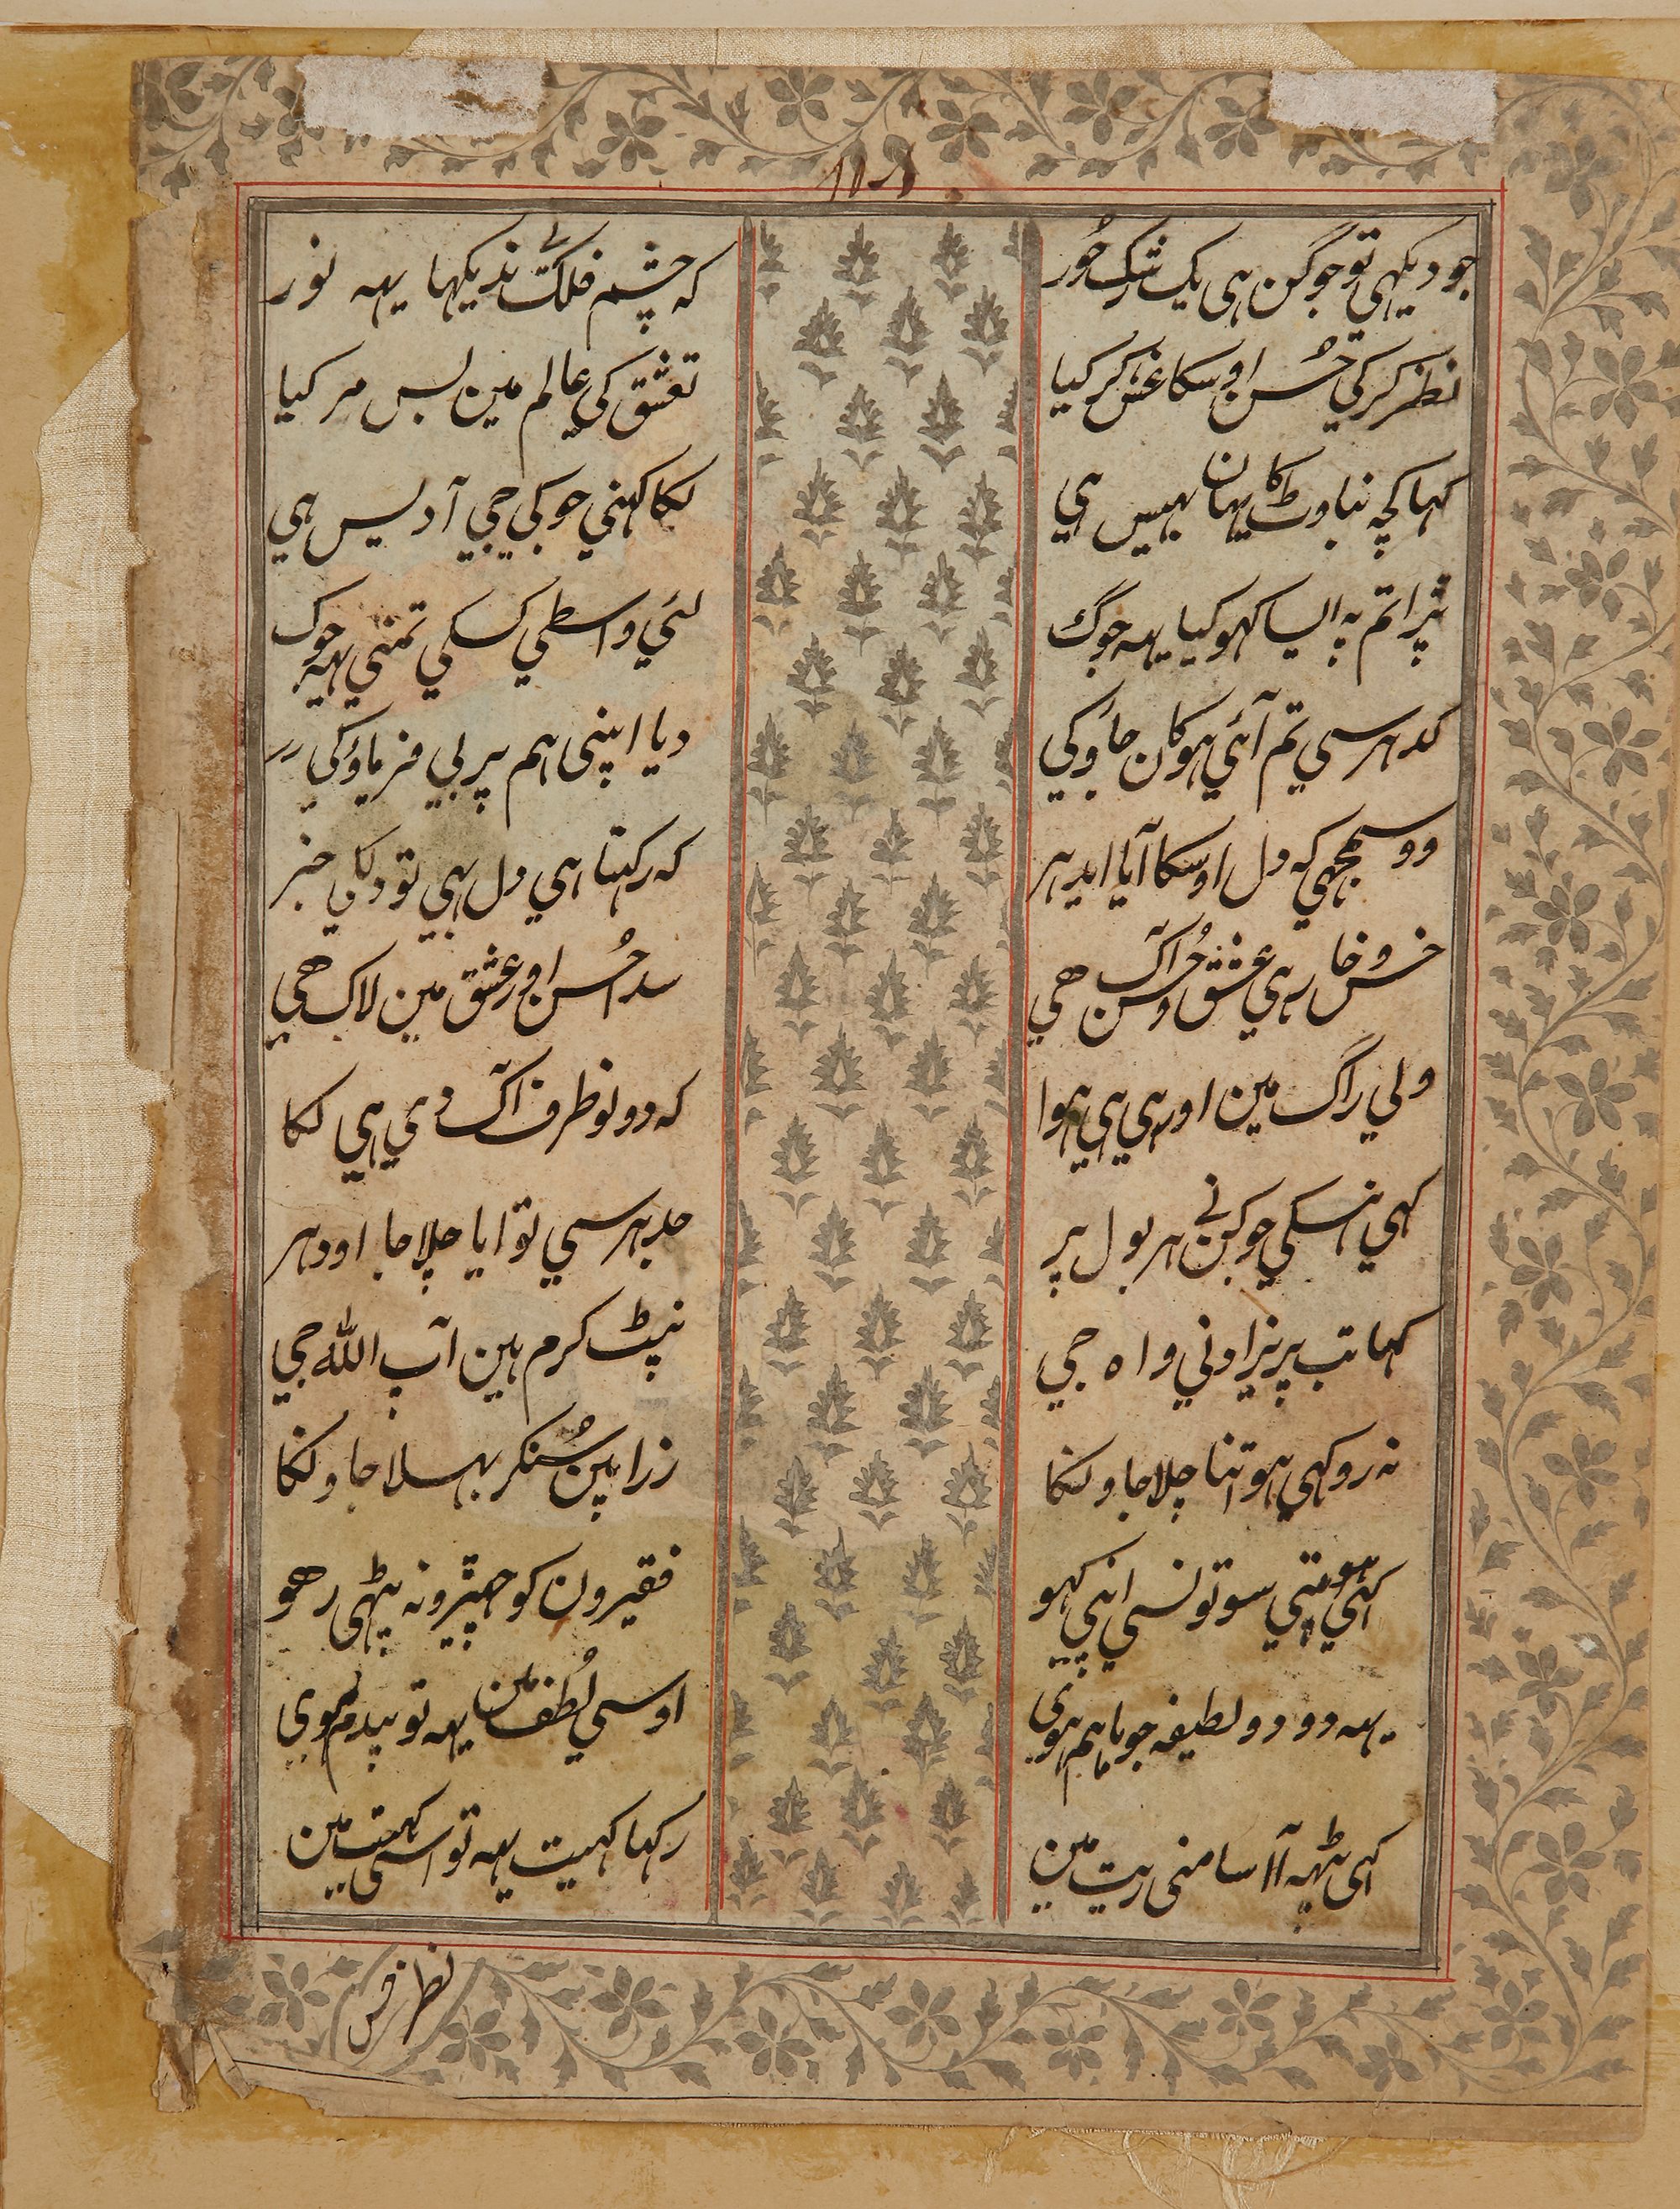 جو دیکہی تو جوگن ہی یک رشک حُور
کہ چشم فلک نی ندیکہا یہہ نور
نظر کر کی حُسن اوسکا غش کر کیا
تعشق کی عالم مین بس مر کیا
کہا کچہ بناوٹ کا یہان بہیس ہی
لکا کہنی جوکی جی آدیس ہی
پڑا تم پہ ایسا کہو کیا یہہ جوگ
لئی واسطی کسکی تمنی یہہ جوک
کدہر سی تم آئی ہو کان جاؤکی
دیا اپنی ہم پر بی فرماؤکی
وو سمجہی کہ دل اوسکا آیا ایدہر
کہ رکہتا ہی دل بہی تو دلکی خبر
خس و خار ہی عشق و حُسن آک ہی
سدا حُسن اور عشق مین لاک ہی
ولی راگ مین اور ہی ہی ہوا
کہ دونو طرف آک دی ہی لکا
کہی ہنسکی جوکن نی ہر بول ہر
جدہر سی تو ایا چلا جا اودہر
کہا تب پریزاد نی واہ جی
نپٹ کرم ہین آپ اللہ جی
نہ روکہی ہو اتنا چلا جاونکا
زرا بین سُنکر بہلا جاونکا
کہی ہوتی سوتونسی اپنی کہو
فقیرون کو چہیڑو نہ بیٹہی رہو
یہہ دو دو لطیفہ جو باہم ہوی
اوسی لُطف مین یہہ تو بیدم ہوی
کہی بیٹہہ آ سامنی ریت مین
رکہا کہیت یہہ تو اسی کہیت مین
نظر فرش